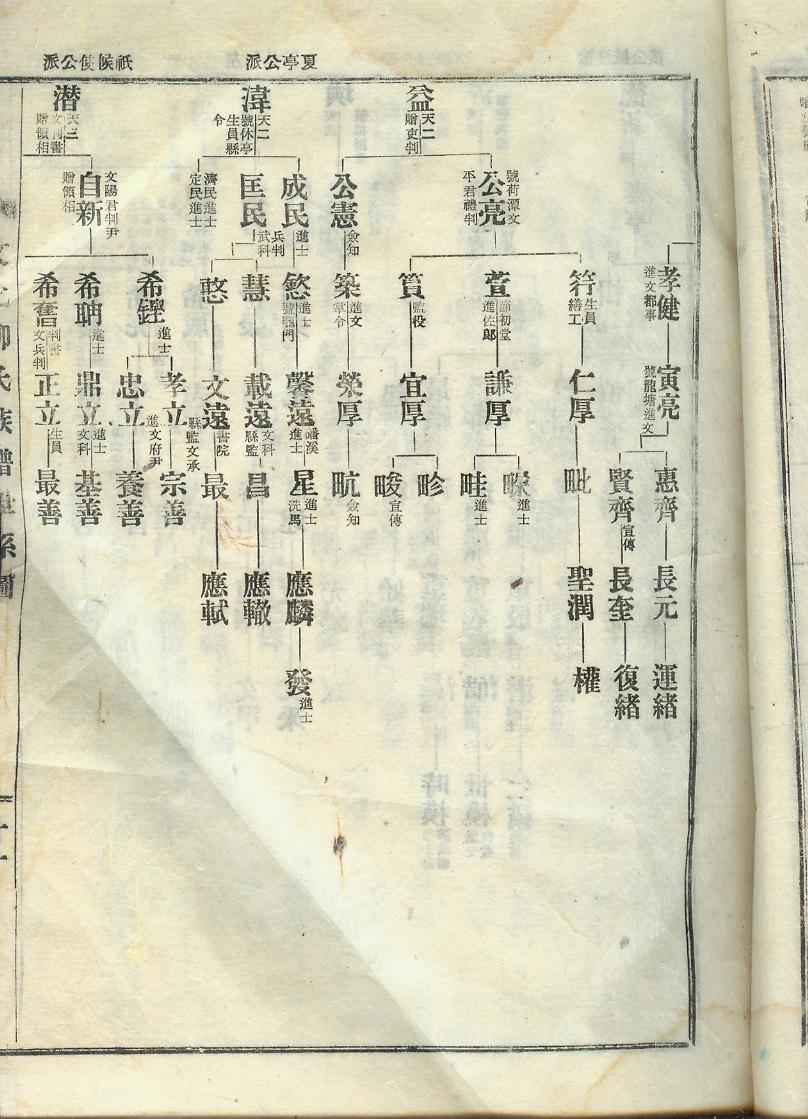 夏亭公派
祇候使公派
孝健
進文都事
寅亮
號龍塘進文
惠齊
長元
運緒
賢齊
宣傳
長奎
復緒
益
天二
贈吏判
公亮
號荷潭文
平君禮判
符
生員
繕工
仁厚
毗
聖潤
權
萱
進佐郎
謙厚
進士
畦
進士
篔
監役
宜厚
畛
畯
宣傳
公憲
僉知
築
進文
掌令
榮厚
畹
僉知
湋
天二
號休亭
生員縣
令
成民
進士
慾
進士
馨遠
蟠溪
進士
星
進士
洗馬
應麟
發
進士
匡民
兵判
武科
慧
載遠
文科
縣監
昌
應轍
憨
文遠
書院
最
應軾
濟民進士
定民進士
潜
天三
贈領相
自新
文陽君判尹
贈領相
希鏗
進士
孝立
縣監文承
宗善
忠立
進文府尹
養善
希聃
進士
鼎立
進士
文科
基善
希奮
判書
文兵判
正立
生員
最善
柳氏族譜
系圖